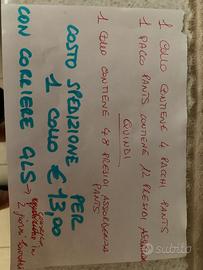 1 COLLO CONTIENE 4 PACCHI PANTS
1 PACCO PANTS CONTIENE 12 PRESIDI
QUINDI
1 COLLO CONTIENE 48 PRESIDI ASSORBENZA
PANTS
COSTO SPEDIZIONE PER
1 COLLO € 13,00
CON CORRIERE GLS →
2 giorni lavorativi
subito